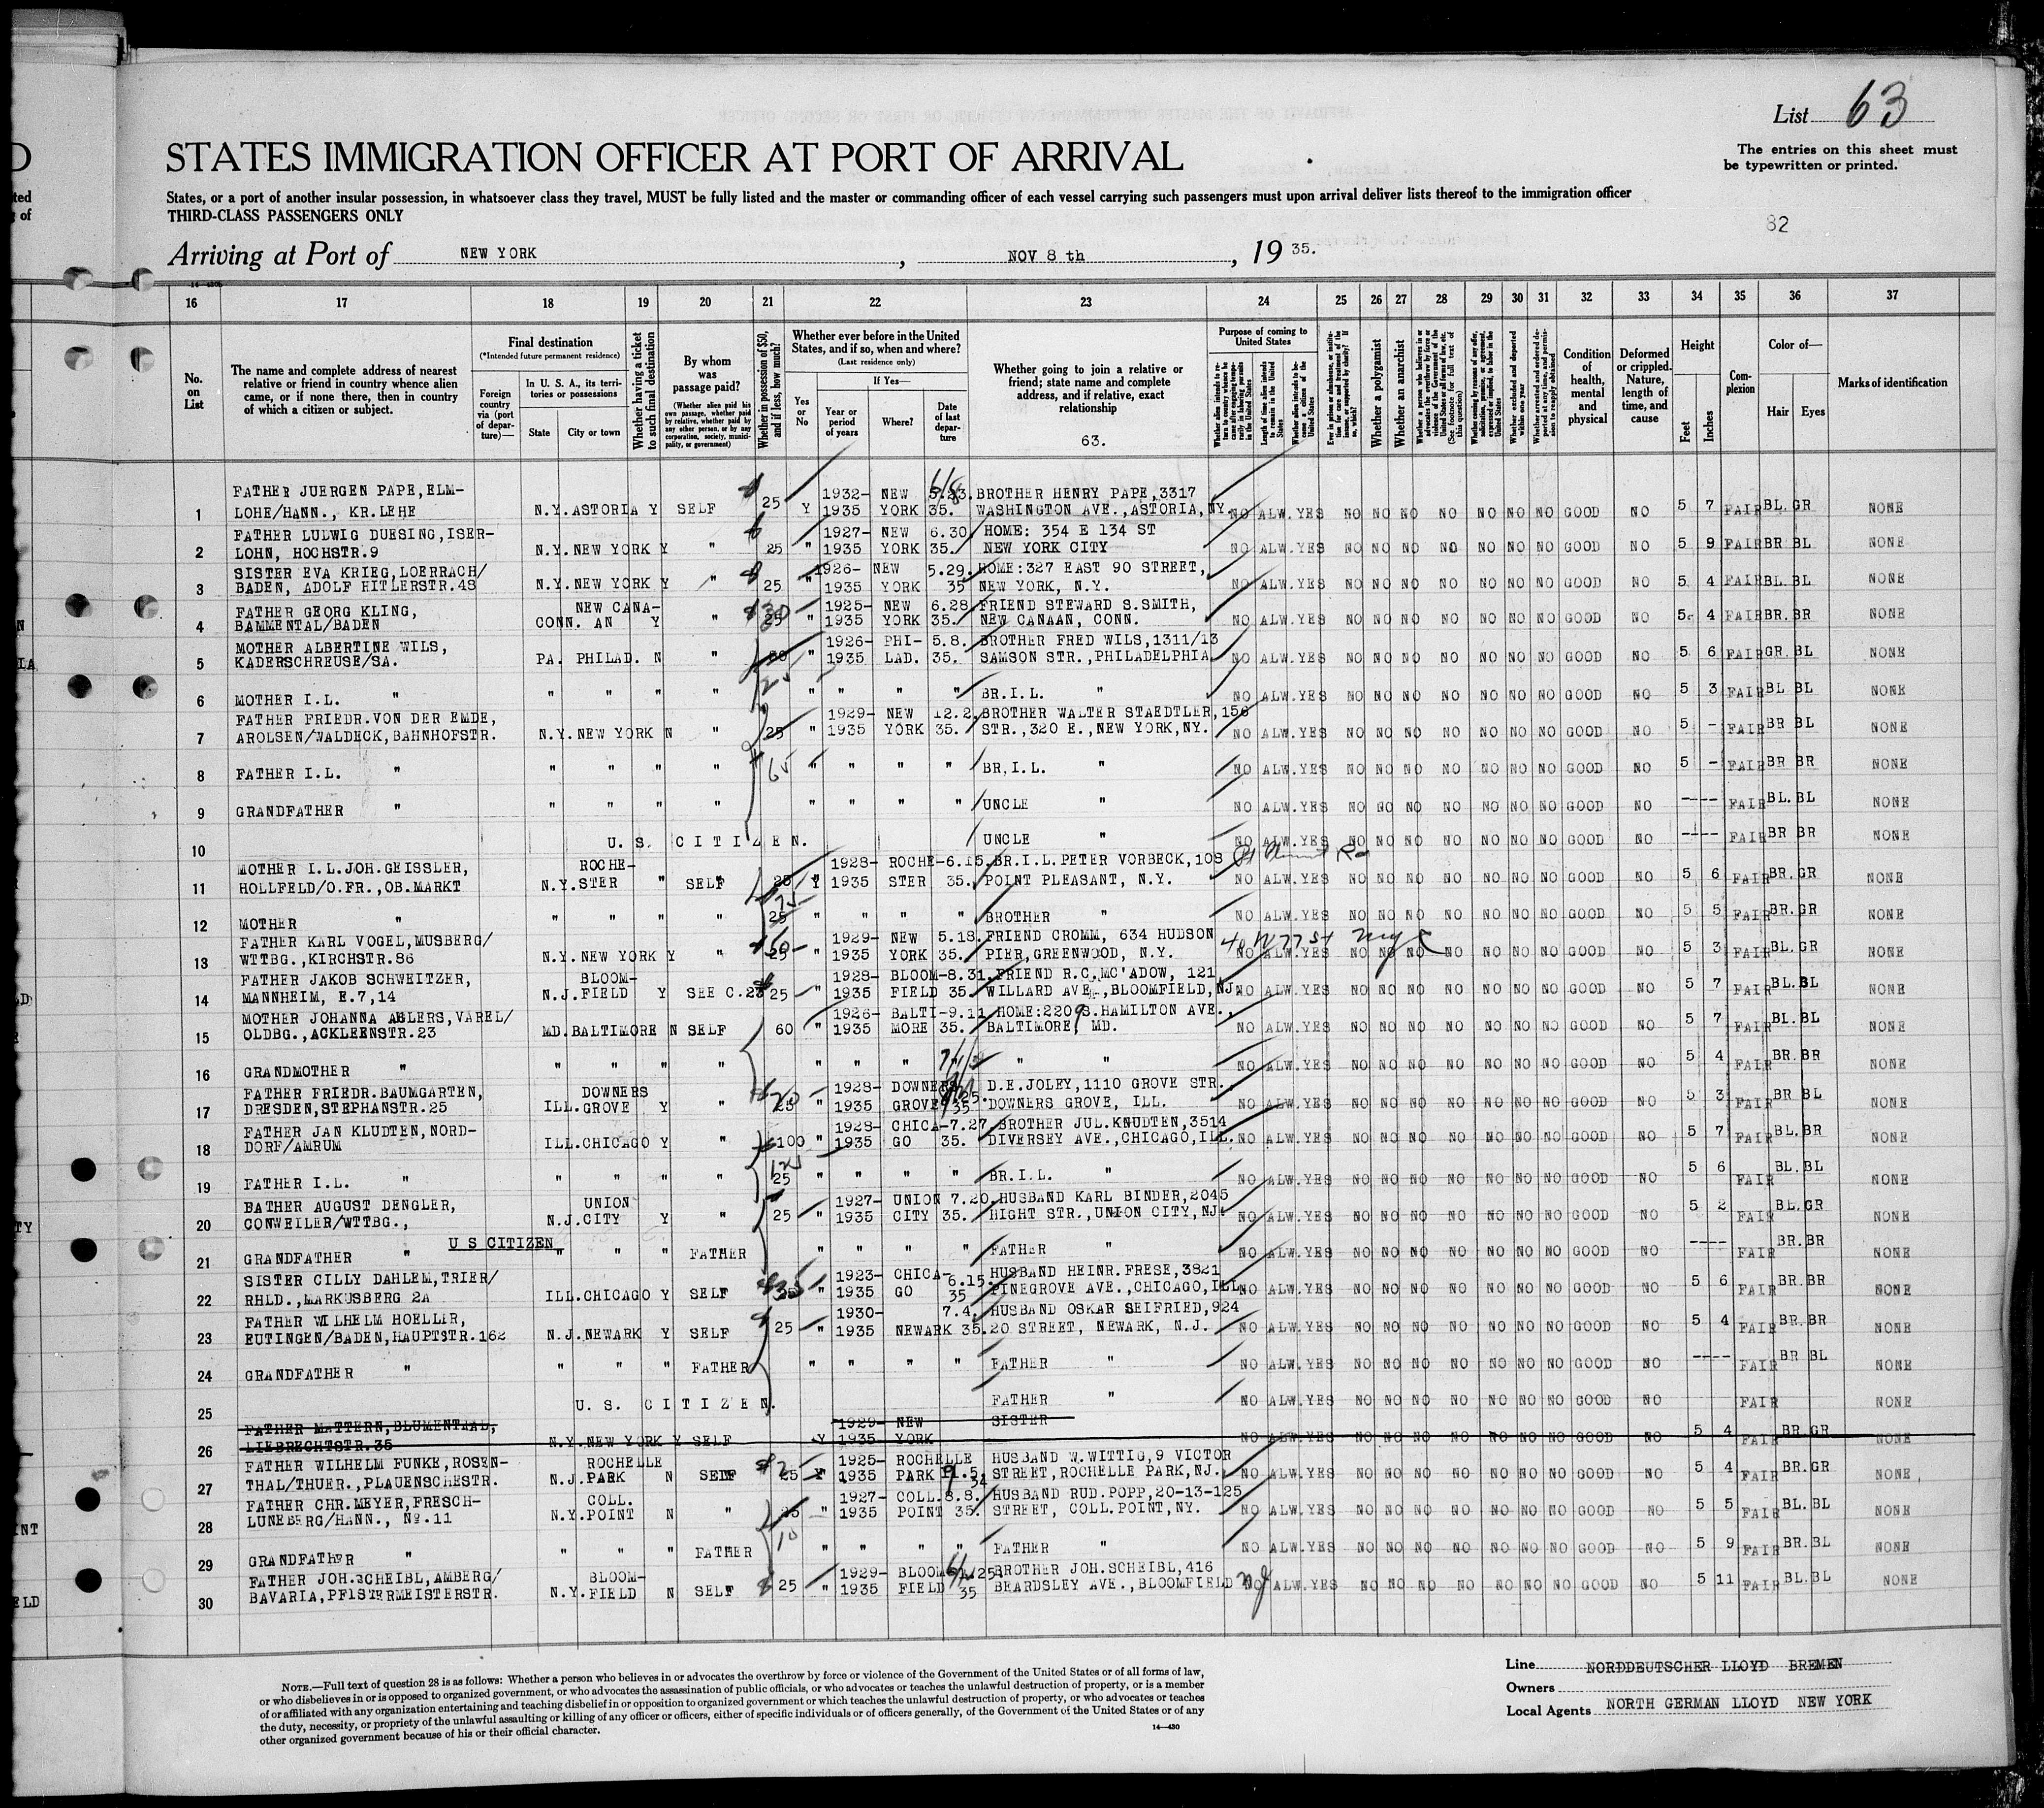 List 63
STATES IMMIGRATION OFFICER AT PORT OF ARRIVAL
The entries on this sheet must
be typewritten or printed.
States, or a port of another insular possession, in whatsoever class they travel, MUST be fully listed and the master or commanding officer of each vessel carrying such passengers must upon arrival deliver lists thereof to the immigration officer
THIRD-CLASS PASSENGERS ONLY
82
Arriving at Port of NEW YORK, NOV 8 th, 19 35.
16 17 18 19 20 21 22 23 24 25 26 27 28 29 30 31 32 33 34 35 36 37
No. on List
The name and complete address of nearest relative or friend in country whence alien came, or if none there, then in country of which a citizen or subject.
Final destination
(*Intended future permanent residence)
Foreign country via (port of departure)—
In U. S. A., its territories or possessions
State
City or town
Whether having a ticket to such final destination
By whom was passage paid?
(Whether alien paid his own passage, whether paid by relative, whether paid by any other person, or by any corporation, society, municipality, or government)
Whether in possession of $50, and if less, how much?
Whether ever before in the United States, and if so, when and where?
(Last residence only)
Yes or No
If Yes—
Year or period of years
Where?
Date of last departure
Whether going to join a relative or friend; state name and complete address, and if relative, exact relationship
63.
Purpose of coming to United States
Whether a polygamist
Whether an anarchist
Condition of health, mental and physical
Deformed or crippled. Nature, length of time, and cause
Height
Feet
Inches
Complexion
Color of—
Hair
Eyes
Marks of identification
FATHER JUERGEN PAPE, ELM- 1932- NEW 5.23. BROTHER HENRY PAPE, 3317
1 LOHE/HANN., KR.LEHE N.Y. ASTORIA Y SELF 25 Y 1935 YORK 35. WASHINGTON AVE., ASTORIA, NY. NO ALW. YES NO NO NO NO NO NO NO GOOD NO 5 7 FAIR BL. GR NONE
FATHER LUDWIG DUESING, ISER- 1927- NEW 6.30. HOME: 354 E 134 ST
2 LOHN, HOCHSTR.9 N.Y. NEW YORK Y " 25 " 1935 YORK 35. NEW YORK CITY NO ALW. YES NO NO NO NO NO NO NO GOOD NO 5 9 FAIR BR BL NONE
SISTER EVA KRIEG, LOERRACH/ 1926- NEW 5.29. HOME: 327 EAST 90 STREET,
3 BADEN, ADOLF HITLERSTR.48 N.Y. NEW YORK Y " 25 " 1935 YORK 35 NEW YORK, N.Y. NO ALW. YES NO NO NO NO NO NO NO GOOD NO 5 4 FAIR BL. BL NONE
FATHER GEORG KLING, NEW CANA- 30 1925- NEW 6.28. FRIEND STEWARD S.SMITH,
4 BAMMENTAL/BADEN CONN. AN Y " 25 " 1935 YORK 35. NEW CANAAN, CONN. NO ALW. YES NO NO NO NO NO NO NO GOOD NO 5 4 FAIR BR. BR NONE
MOTHER ALBERTINE WILS, 1926- PHI- 5.8. BROTHER FRED WILS, 1311/13
5 KADERSCHREUSE/SA. PA. PHILAD. N " " 1935 LAD. 35. SAMSON STR., PHILADELPHIA NO ALW. YES NO NO NO NO NO NO NO GOOD NO 5 6 FAIR GR. BL NONE
6 MOTHER I.L. " " " " " 25 " " " " BR.I.L. " NO ALW. YES NO NO NO NO NO NO NO GOOD NO 5 3 FAIR BL BL NONE
FATHER FRIEDR.VON DER EMDE, 1929- NEW 12.2. BROTHER WALTER STAEDTLER, 156
7 AROLSEN/WALDECK, BAHNHOFSTR. N.Y. NEW YORK N " 25 " 1935 YORK 35. STR., 320 E., NEW YORK, NY. NO ALW. YES NO NO NO NO NO NO NO GOOD NO 5 - FAIR BR BL NONE
8 FATHER I.L. " " " " " 65 " " " " BR.I.L. " NO ALW. YES NO NO NO NO NO NO NO GOOD NO 5 - FAIR BR BR NONE
9 GRANDFATHER " " " " " " " " " UNCLE " NO ALW. YES NO NO NO NO NO NO NO GOOD NO ---- FAIR BL. BL NONE
10 U. S. CITIZEN. UNCLE " NO ALW. YES NO NO NO NO NO NO NO GOOD NO ---- FAIR BR BR NONE
MOTHER I.L.JOH.GEISSLER, ROCHE- 1928- ROCHE- 6.15. BR.I.L. PETER VORBECK, 108
11 HOLLFELD/O.FR., OB.MARKT N.Y. STER " SELF 25 Y 1935 STER 35. POINT PLEASANT, N.Y. NO ALW. YES NO NO NO NO NO NO NO GOOD NO 5 6 FAIR BR. GR NONE
12 MOTHER " " " " " 75 25 " " " " BROTHER " NO ALW. YES NO NO NO NO NO NO NO GOOD NO 5 5 FAIR BR. GR NONE
FATHER KARL VOGEL, MUSBERG/ 50 1929- NEW 5.18. FRIEND CROMM, 634 HUDSON 40 W 77 St NYC
13 WTTBG., KIRCHSTR.86 N.Y. NEW YORK Y " 25 " 1935 YORK 35. PIER, GREENWOOD, N.Y. NO ALW. YES NO NO NO NO NO NO NO GOOD NO 5 3 FAIR BL. GR NONE
FATHER JAKOB SCHWEITZER, BLOOM- 1928- BLOOM- 8.31. FRIEND R.C.MC'ADOW, 121
14 MANNHEIM, E.7,14 N.J. FIELD Y SEE C.23 25 " 1935 FIELD 35. WILLARD AVE., BLOOMFIELD, NJ. NO ALW. YES NO NO NO NO NO NO NO GOOD NO 5 7 FAIR BL. BL NONE
MOTHER JOHANNA AHLERS, VAREL/ 1926- BALTI- 9.11. HOME: 2209 S.HAMILTON AVE.,
15 OLDBG., ACKLEENSTR.23 MD. BALTIMORE N SELF 60 " 1935 MORE 35. BALTIMORE, MD. NO ALW. YES NO NO NO NO NO NO NO GOOD NO 5 7 FAIR BL. BL NONE
16 GRANDMOTHER " " " " " " " " " " " NO ALW. YES NO NO NO NO NO NO NO GOOD NO 5 4 FAIR BR. BR NONE
FATHER FRIEDR.BAUMGARTEN, DOWNERS 1928- DOWNERS D.E.JOLEY, 1110 GROVE STR.,
17 DRESDEN, STEPHANSTR.25 ILL. GROVE Y " 25 " 1935 GROVE 35 DOWNERS GROVE, ILL. NO ALW. YES NO NO NO NO NO NO NO GOOD NO 5 3 FAIR BR BL NONE
FATHER JAN KLUDTEN, NORD- 1928- CHICA- 7.27. BROTHER JUL.KNUDTEN, 3514
18 DORF/AMRUM ILL. CHICAGO Y " 100 " 1935 GO 35. DIVERSEY AVE., CHICAGO, ILL. NO ALW. YES NO NO NO NO NO NO NO GOOD NO 5 7 FAIR BL. BR NONE
19 FATHER I.L. " " " " " 125 25 " " " " BR.I.L. " NO ALW. YES NO NO NO NO NO NO NO GOOD NO 5 6 FAIR BL. BL NONE
BATHER AUGUST DENGLER, UNION 1927- UNION 7.20. HUSBAND KARL BINDER, 2045
20 CONWEILER/WTTBG., N.J. CITY Y " 25 " 1935 CITY 35. HIGHT STR., UNION CITY, NJ. NO ALW. YES NO NO NO NO NO NO NO GOOD NO 5 2 FAIR BL. GR NONE
U S CITIZEN
21 GRANDFATHER " " " " FATHER " " " " FATHER " NO ALW. YES NO NO NO NO NO NO NO GOOD NO ---- FAIR BR. BR NONE
SISTER CILLY DAHLEM, TRIER/ 1923- CHICA- 6.15. HUSBAND HEINR.FRESE, 3821
22 RHLD., MARKUSBERG 2A ILL. CHICAGO Y SELF 35 " 1935 GO 35 PINEGROVE AVE., CHICAGO, ILL. NO ALW. YES NO NO NO NO NO NO NO GOOD NO 5 6 FAIR BR. BR NONE
FATHER WILHELM HOELLER, 1930- 7.4. HUSBAND OSKAR SEIFRIED, 924
23 EUTINGEN/BADEN, HAUPTSTR.162 N.J. NEWARK Y SELF 25 " 1935 NEWARK 35. 20 STREET, NEWARK, N.J. NO ALW. YES NO NO NO NO NO NO NO GOOD NO 5 4 FAIR BR. BR NONE
24 GRANDFATHER " " " " FATHER " " " " FATHER " NO ALW. YES NO NO NO NO NO NO NO GOOD NO ---- FAIR BR BL NONE
25 U. S. CITIZEN. FATHER " NO ALW. YES NO NO NO NO NO NO NO GOOD NO FAIR NONE
FATHER MATTERN, BLUMENTHAL, 1929- NEW SISTER
26 LIEBRECHTSTR.35 N.Y. NEW YORK Y SELF Y 1935 YORK NO ALW. YES NO NO NO NO NO NO NO GOOD NO 5 4 FAIR BR. GR NONE
FATHER WILHELM FUNKE, ROSEN- ROCHELLE 1925- ROCHELLE HUSBAND W.WITTIG, 9 VICTOR
27 THAL/THUER., PLAUENSCHESTR. N.J. PARK N SELF 25 Y 1935 PARK 11.5. 34 STREET, ROCHELLE PARK, NJ. NO ALW. YES NO NO NO NO NO NO NO GOOD NO 5 4 FAIR BR. GR NONE
FATHER CHR.MEYER, FRESCH- COLL. 1927- COLL. 8.8. HUSBAND RUD.POPP, 20-13-125
28 LUNEBERG/HANN., No.11 N.Y. POINT N " " 1935 POINT 35. STREET, COLL.POINT, NY. NO ALW. YES NO NO NO NO NO NO NO GOOD NO 5 5 FAIR BL. BL NONE
29 GRANDFATHER " " " " FATHER 10 " " " " FATHER " NO ALW. YES NO NO NO NO NO NO NO GOOD NO 5 9 FAIR BR. BL NONE
FATHER JOH.SCHEIBL, AMBERG/ BLOOM- 1929- BLOOM BROTHER JOH.SCHEIBL, 416
30 BAVARIA, PFISTERMEISTERSTR. N.Y. FIELD N SELF 25 " 1935 FIELD 35 BEARDSLEY AVE., BLOOMFIELD NJ NO ALW. YES NO NO NO NO NO NO NO GOOD NO 5 11 FAIR BL. BL NONE
NOTE.—Full text of question 28 is as follows: Whether a person who believes in or advocates the overthrow by force or violence of the Government of the United States or of all forms of law,
or who disbelieves in or is opposed to organized government, or who advocates the assassination of public officials, or who advocates or teaches the unlawful destruction of property, or is a member
of or affiliated with any organization entertaining and teaching disbelief in or opposition to organized government or which teaches the unlawful destruction of property, or who advocates or teaches
the duty, necessity, or propriety of the unlawful assaulting or killing of any officer or officers, either of specific individuals or of officers generally, of the Government of the United States or of any
other organized government because of his or their official character.
14—430
Line NORDDEUTSCHER LLOYD BREMEN
Owners
Local Agents NORTH GERMAN LLOYD NEW YORK